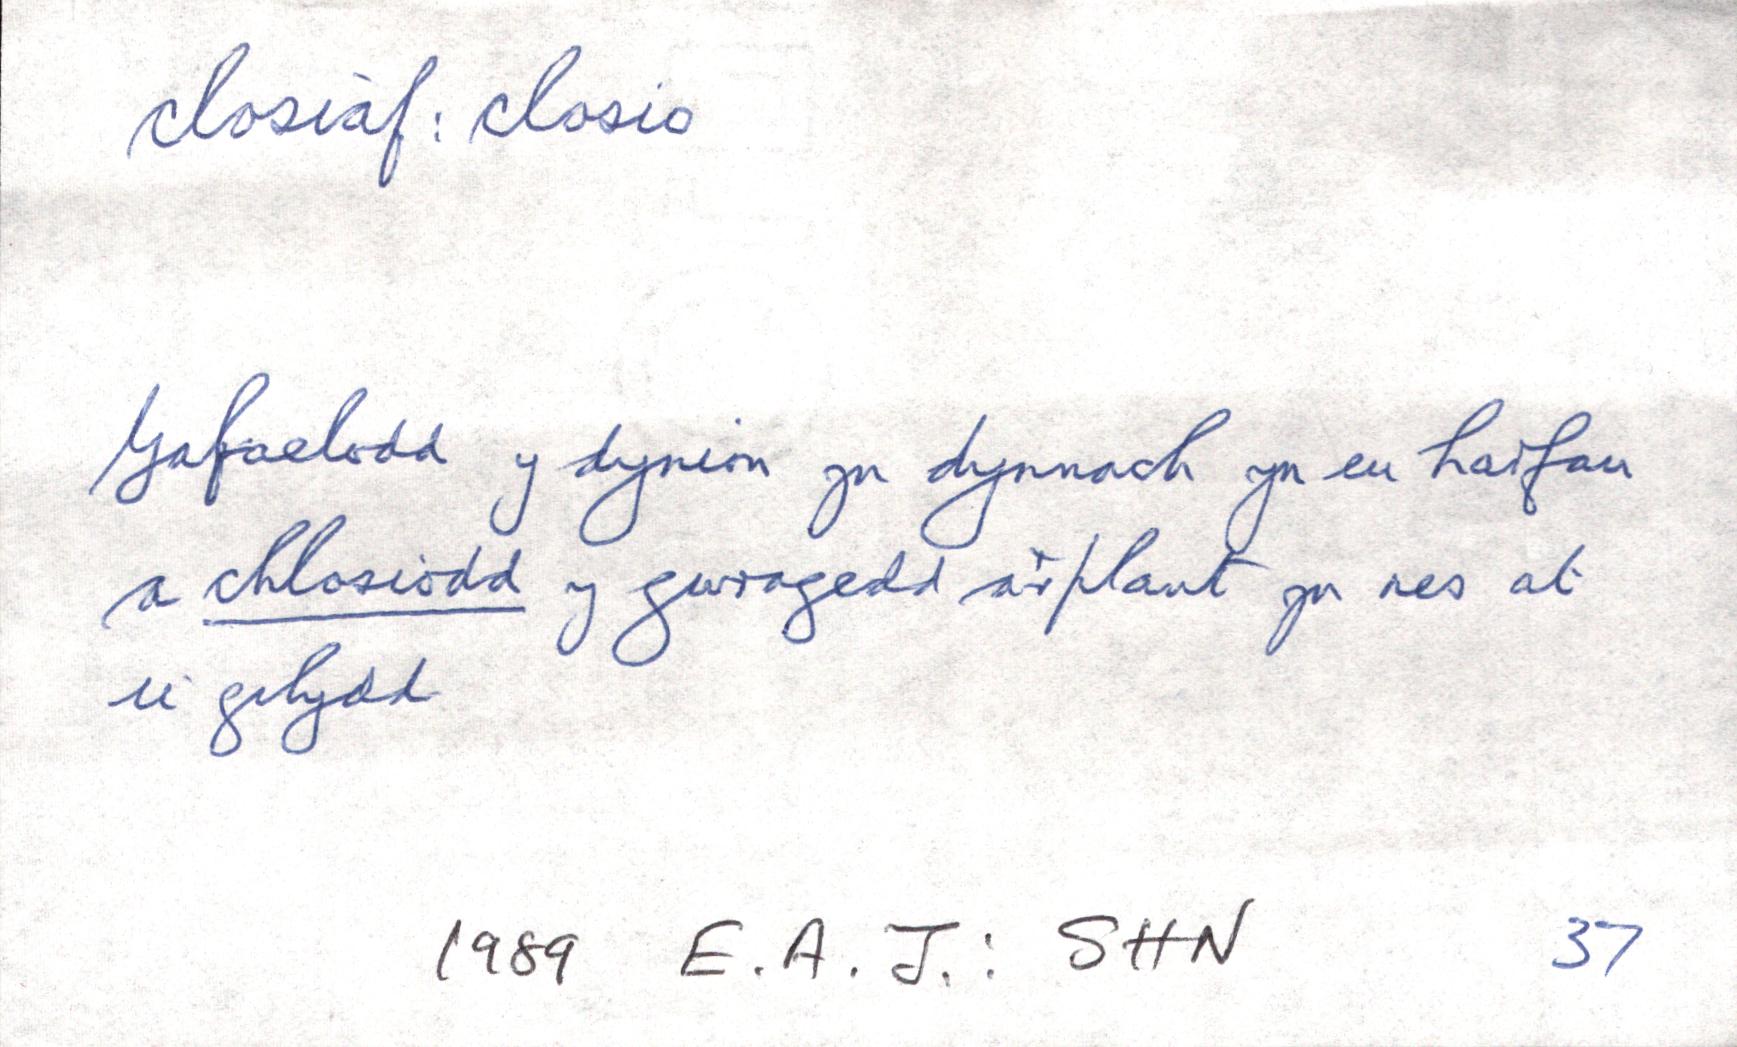 closiaf: closio
Gafaelodd y dynion yn dynnach yn eu harfau
a chlosiodd y gwragedd a'r plant yn nes at
ei gilydd
1989 E.A.J.: SHN 37